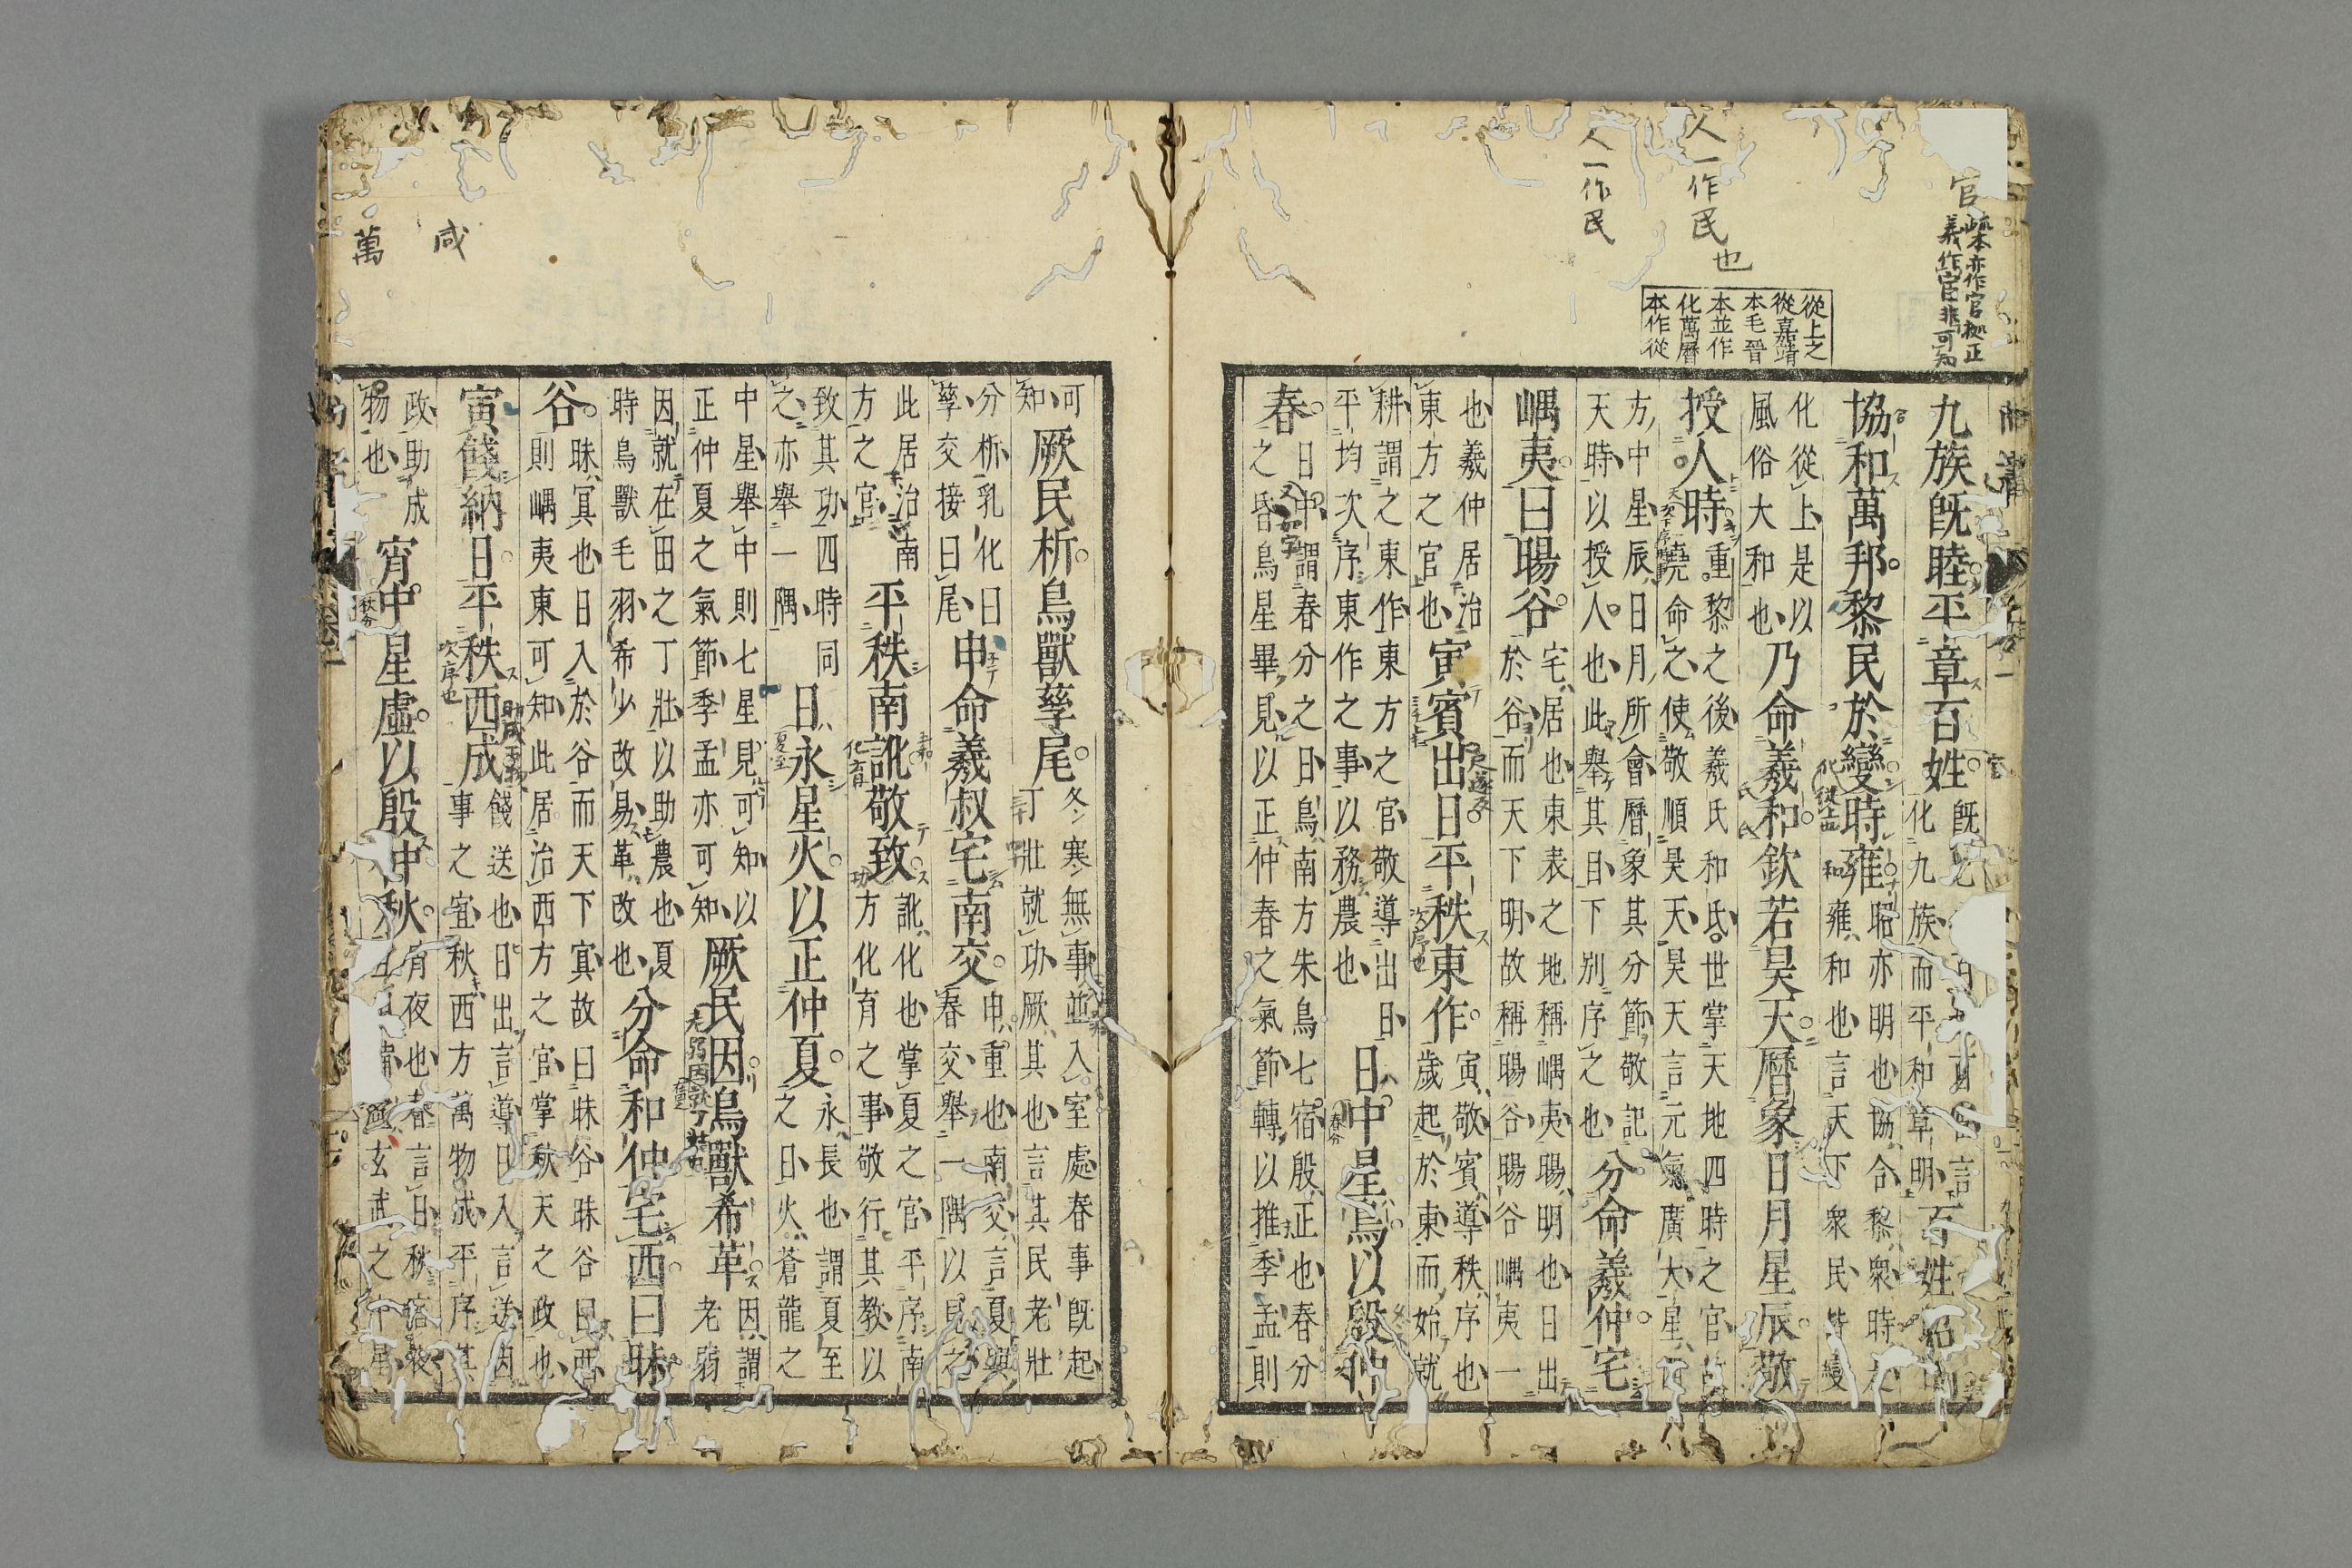 官
疏本亦作官拠正
義作官非可知
人一作民
也
人一作民
從上之
從嘉靖
本毛晉
本並作
化萬曆
本作從
九族既睦平章百姓
化九族而平和章明
百姓昭
協和萬邦黎民於變時雍
昭亦明也協合黎衆時是
雍和也言天下衆民皆變
化從上是以
風俗大和也
乃命羲和欽若昊天曆象日月星辰敬
授人時
重黎之後羲氏和氏世掌天地四時之官故
堯命之使敬順昊天昊天言元氣廣大星四
方中星辰日月所會曆象其分節敬記
天時以授人也此舉其目下別序之也
分命羲仲宅
嵎夷曰暘谷
宅居也東表之地稱嵎夷暘明也日出
於谷而天下明故稱暘谷暘谷嵎夷一
也羲仲居治
東方之官也
寅賓出日平秩東作
寅敬賓導秩序也
歲起於東而始就
耕謂之東作東方之官敬導出日
平均次序東作之事以務農也
日中星鳥以殷仲
春
日中謂春分之日鳥南方朱鳥七宿殷正也春分
之昏鳥星畢見以正仲春之氣節轉以推季孟則
咸
萬
可
知
厥民析鳥獸孳尾
冬寒無事並入室處春事既起
丁壯就功厥其也言其民老壯
分析乳化曰
孳交接曰尾
申命羲叔宅南交
申重也南交言夏與
春交舉一隅以見之
此居治南
方之官
平秩南訛敬致
訛化也掌夏之官平序南
方化育之事敬行其教以
致其功四時同
之亦舉一隅
日永星火以正仲夏
永長也謂夏至
之日火蒼龍之
中星舉中則七星見可知以
正仲夏之氣節季孟亦可知
厥民因鳥獸希革
因謂
老弱
因就在田之丁壯以助農也夏
時鳥獸毛羽希少改易革改也
分命和仲宅西曰昧
谷
昧冥也日入於谷而天下冥故曰昧谷昧谷曰西
則嵎夷東可知此居治西方之官掌秋天之政也
寅餞納日平秩西成
餞送也日出言導日入言送因
事之宜秋西方萬物成平序其
政助成
物也
宵中星虛以殷仲秋
宵夜也春言日秋言夜
玄武之中星